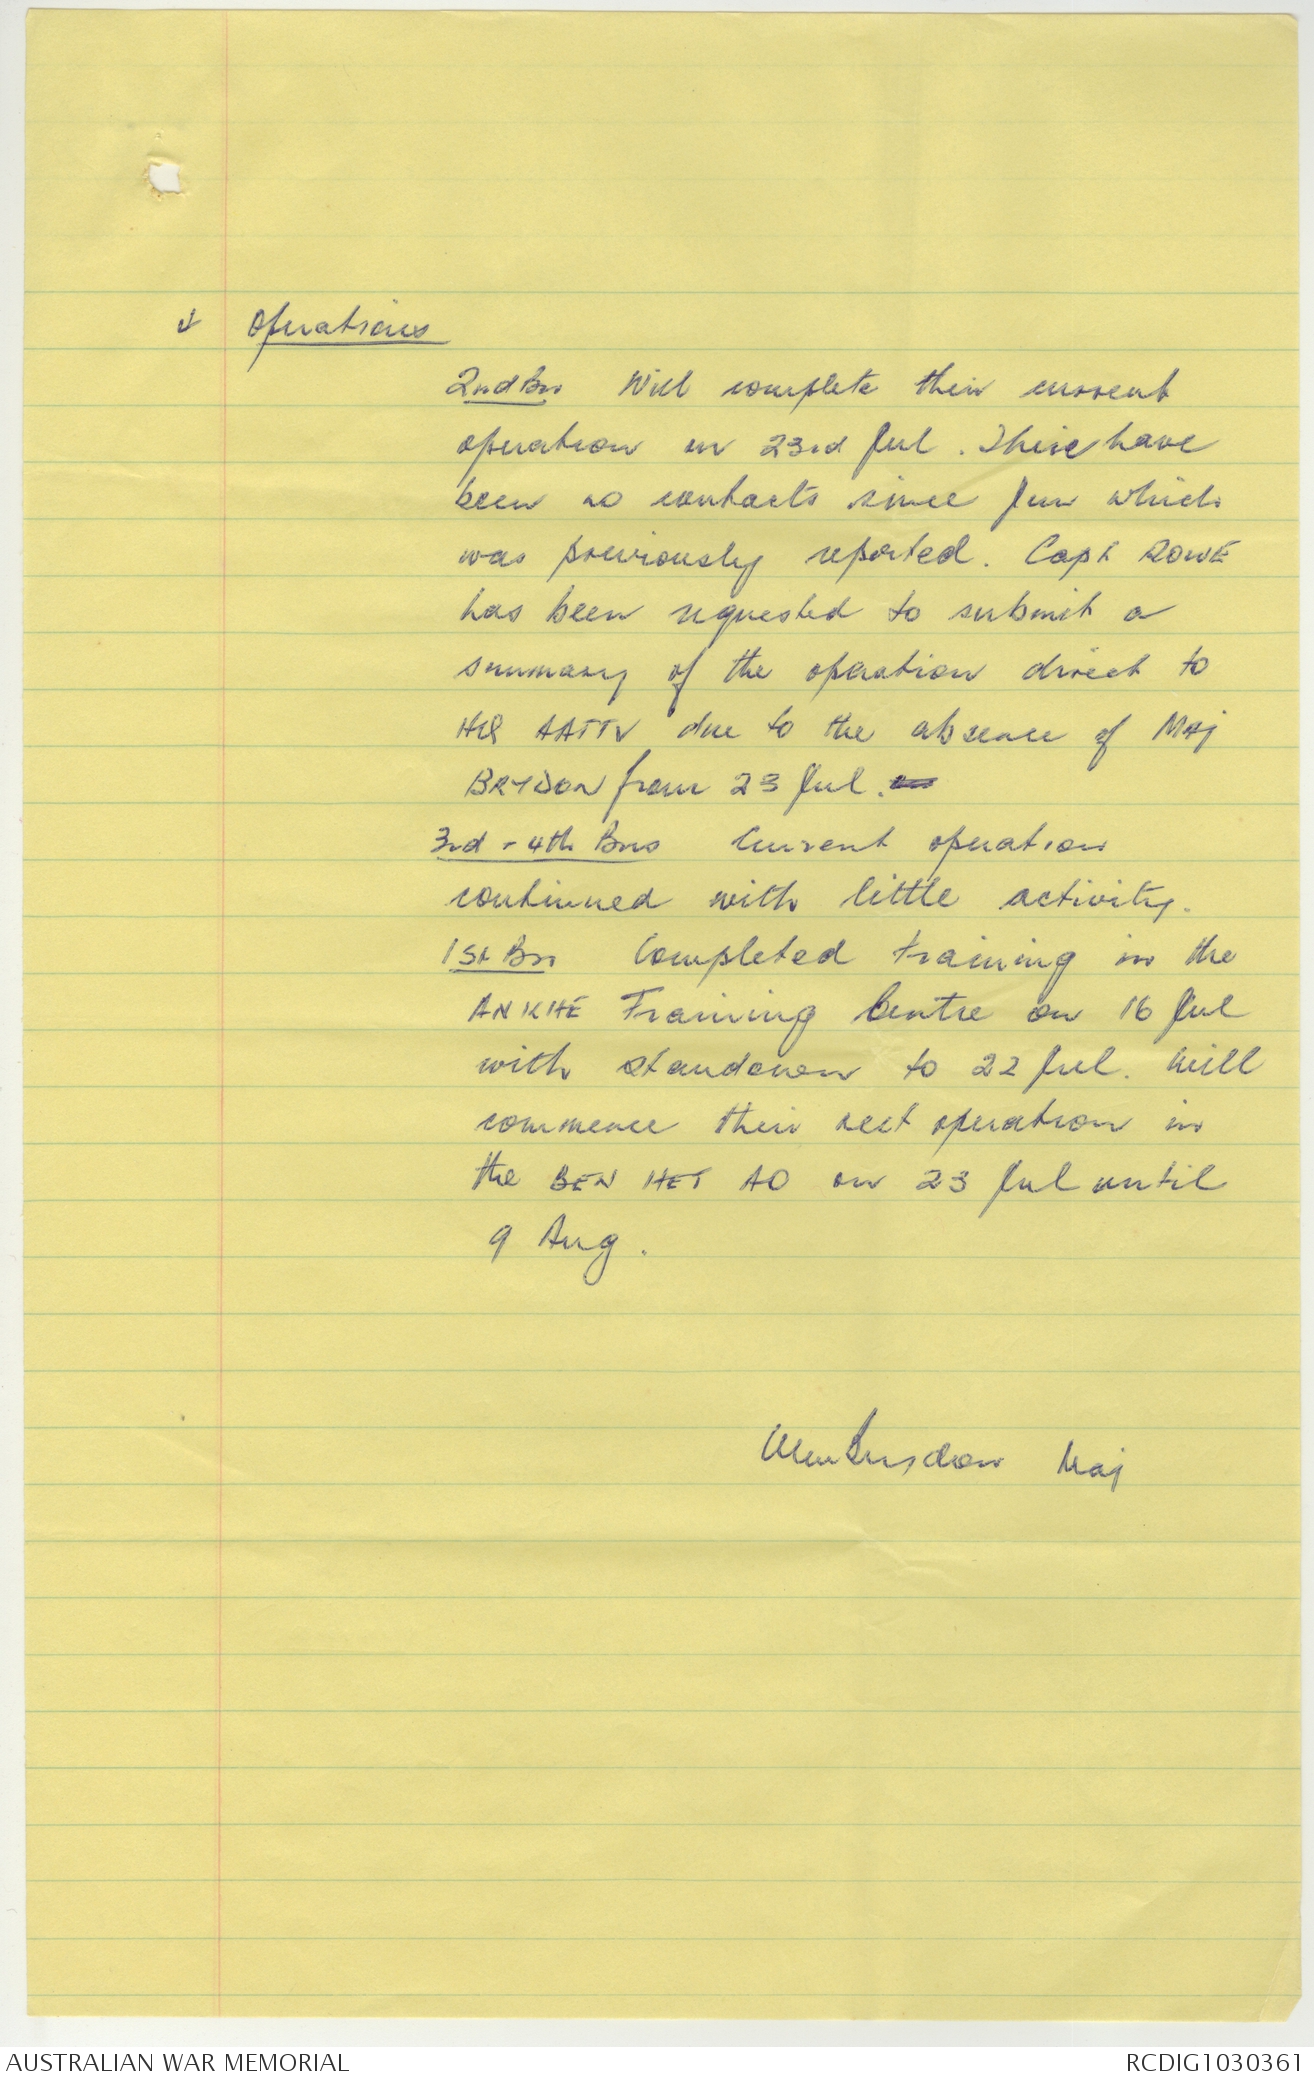 Operations
2nd Bn Will complete their current
operation on 23rd Jul. There have
been no contacts since Jun which
was previously reported. Capt ROWE
has been requested to submit a
summary of the operation direct to
HQ AATTV due to the absence of MAJ
BRYDON from 23 Jul.
3rd - 4th Bns Current operation
continued with little activity.
1st Bn Completed training in the
ANKHE Training Centre on 16 Jul
with standown to 22 Jul. Will
commence their next operation in
the BEN HET AO on 23 Jul until
9 Aug.
Brydon Maj
AUSTRALIAN WAR MEMORIAL
RCDIG1030361